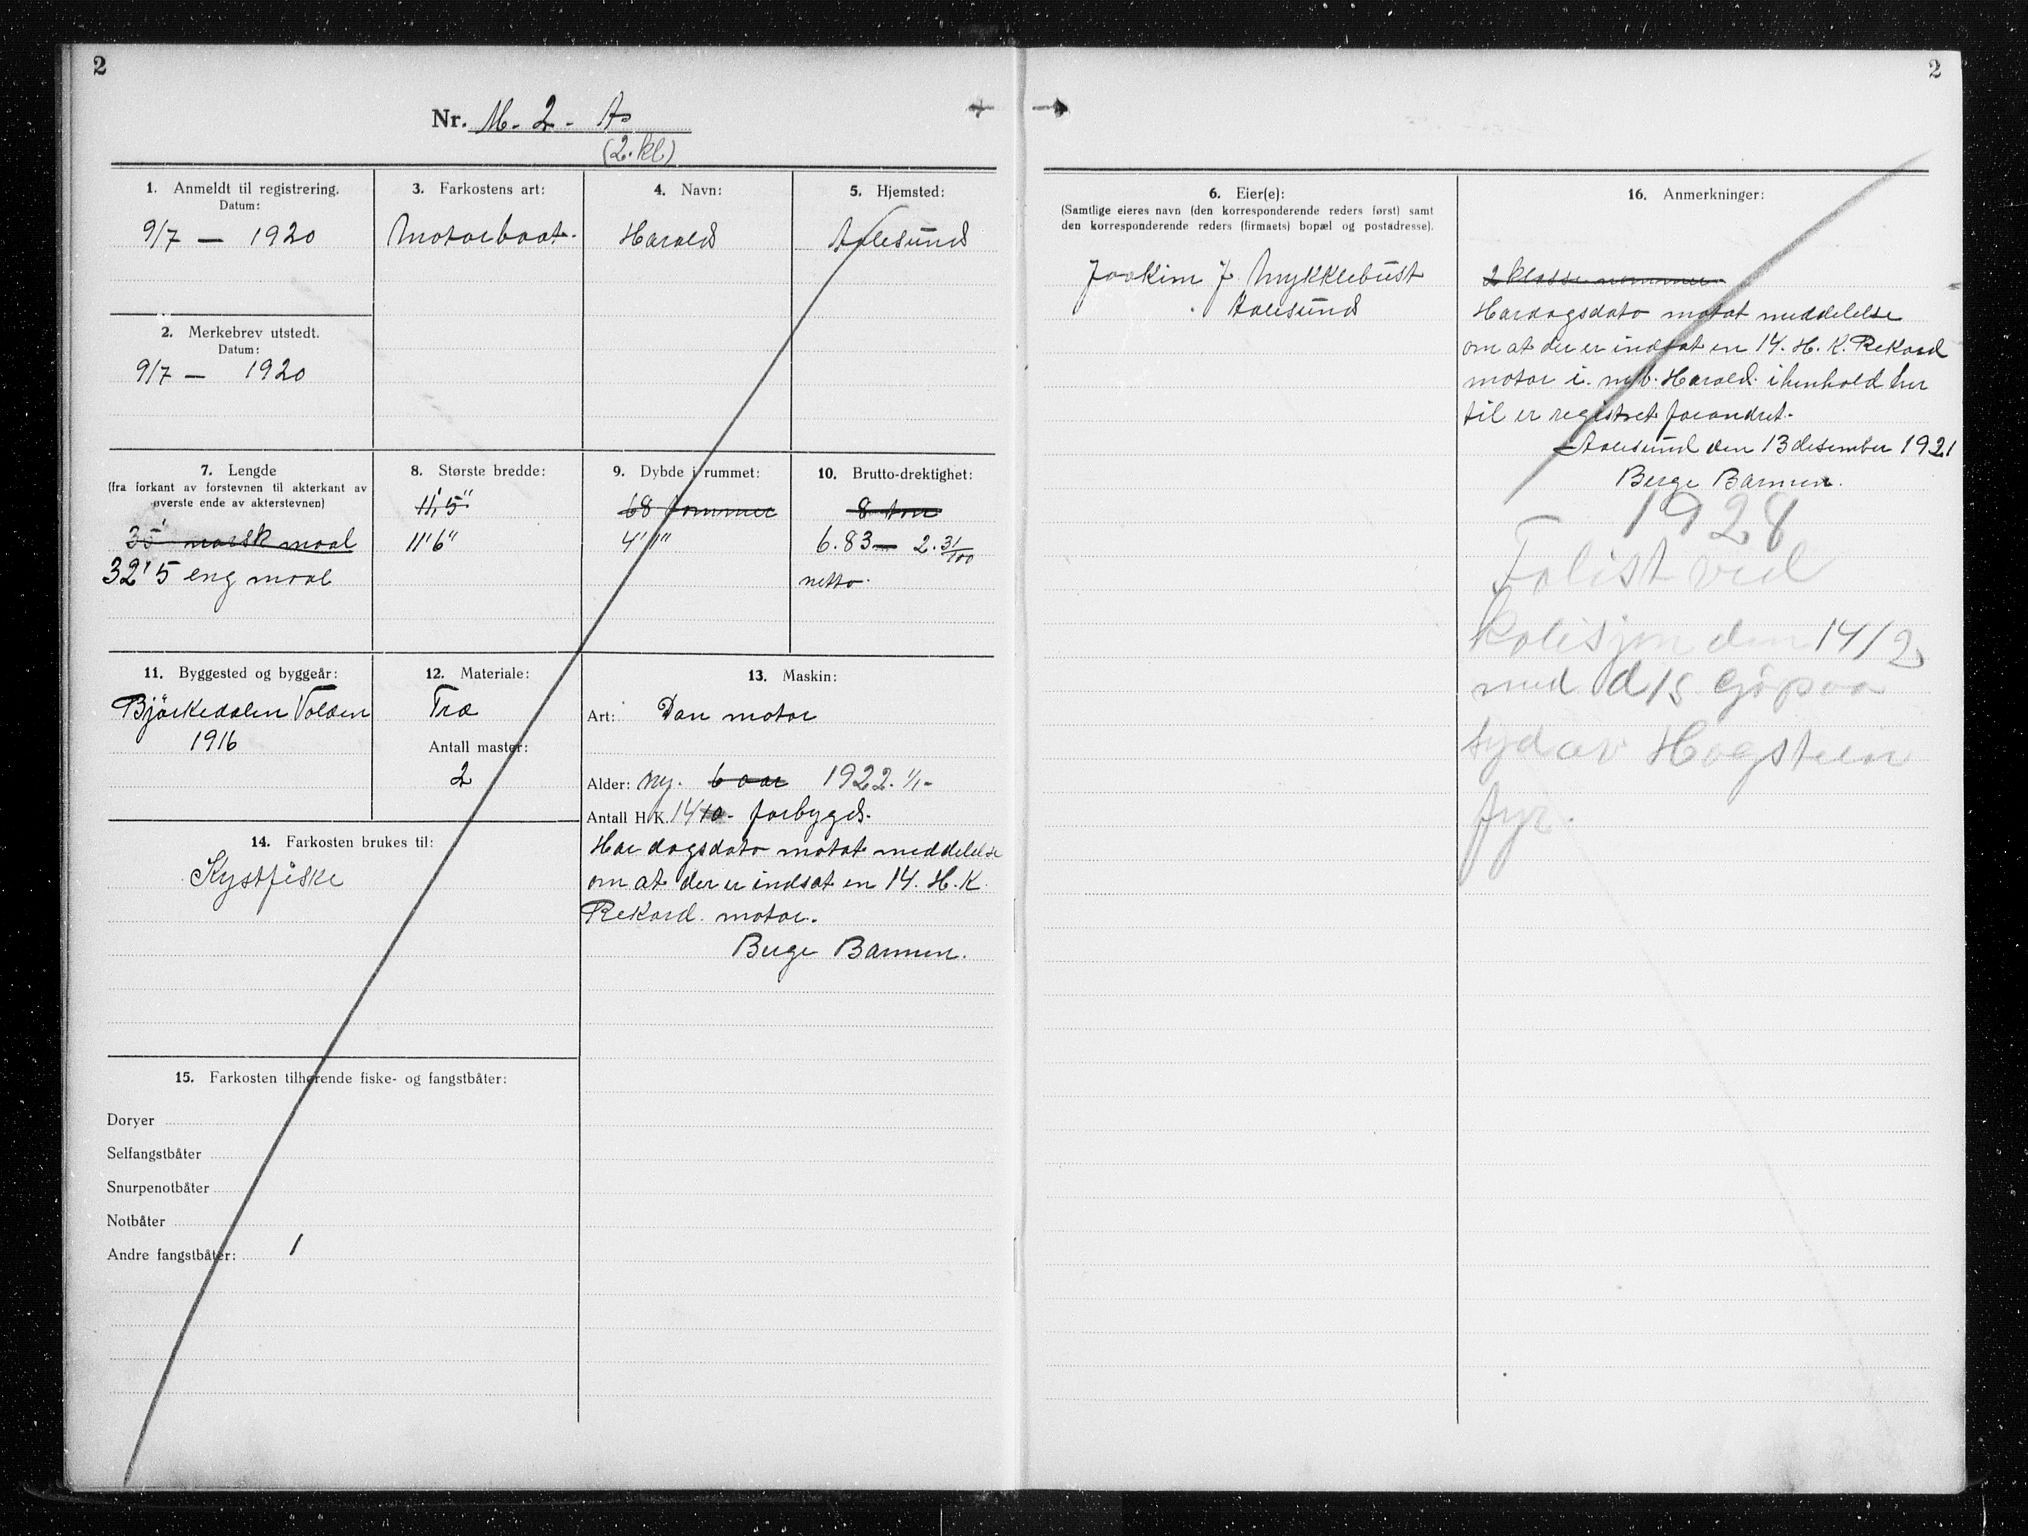 2
Nr. M. 2 - As
(2. kl)
1. Anmeldt til registrering.
Datum:
9/7 — 1920
2. Merkebrev utstedt.
Datum:
9/7 — 1920
3. Farkostens art:
Motorbaat.
4. Navn:
Harald
5. Hjemsted:
Aalesund
7. Lengde
(fra forkant av forstevnen til akterkant av
øverste ende av akterstevnen)
35' norsk maal
32' 5 eng maal
8. Største bredde:
11' 5"
11' 6"
9. Dybde i rummet:
68 tommer
4' 1"
10. Brutto-drektighet:
8 ton
6.83 — 2.31/100
netto.
11. Byggested og byggeår:
Björkedalen Volden
1916
12. Materiale:
Træ
Antall master:
2
13. Maskin:
Art: Dan motor
Alder: ny. 6 aar 1922. 1/1-
Antall H.K. 14 10 - forbygd.
Har dagsdato motat meddelelse
om at der er indsat en 14. H. K.
Rekord motor.
Berge Barmen.
14. Farkosten brukes til:
Kystfiske
15. Farkosten tilhørende fiske- og fangstbåter:
Doryer
Selfangstbåter
Snurpenotbåter
Notbåter
Andre fangstbåter: 1
2
6. Eier(e):
(Samtlige eieres navn (den korresponderende reders først) samt
den korresponderende reders (firmaets) bopæl og postadresse).
Joakim J. Mykklebust
Aalesund
16. Anmerkninger:
2 klasse nommer
Hardagsdato motat meddelelse
om at der er indsat en 14. H. K. Rekord
motor i. m/b. Harald. i henhold her
til er registret forandret.
Aalesund den 13 desember 1921
Berge Barmen.
1928
Folist ved
Kolisjon den 14/2
med d/s
syd av Hogsteen
fyr.